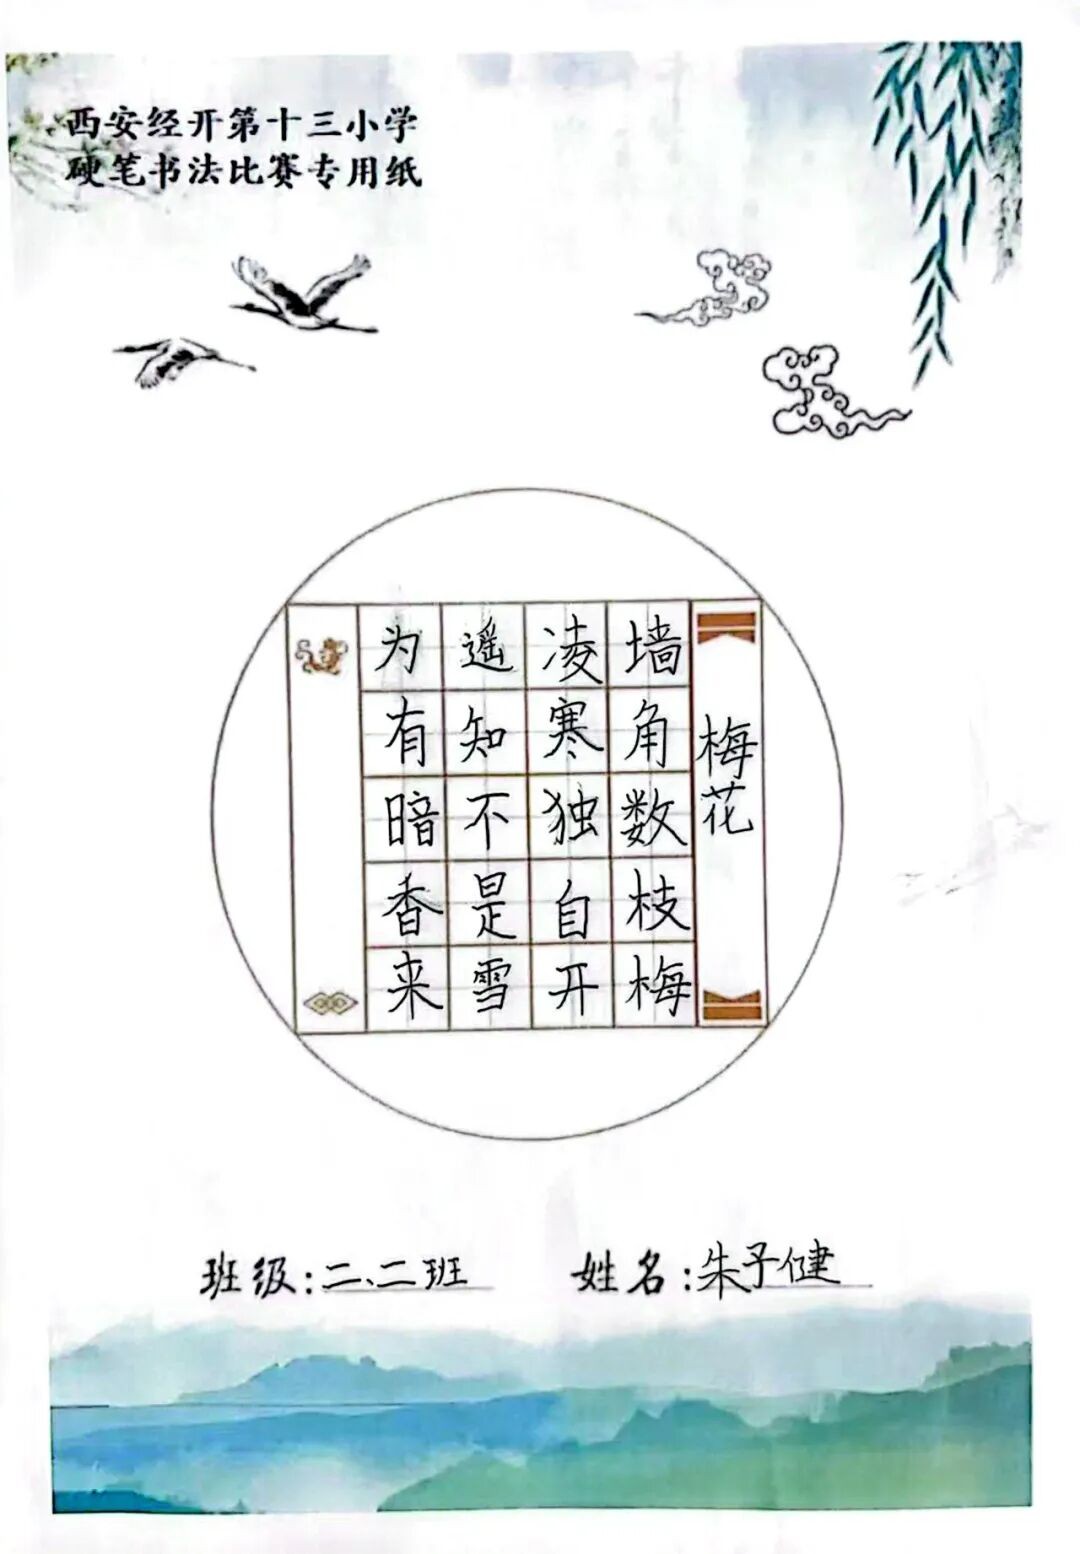 西安经开第十三小学
硬笔书法比赛专用纸
梅花
墙角数枝梅
凌寒独自开
遥知不是雪
为有暗香来
班级:二、二班 姓名:朱子健